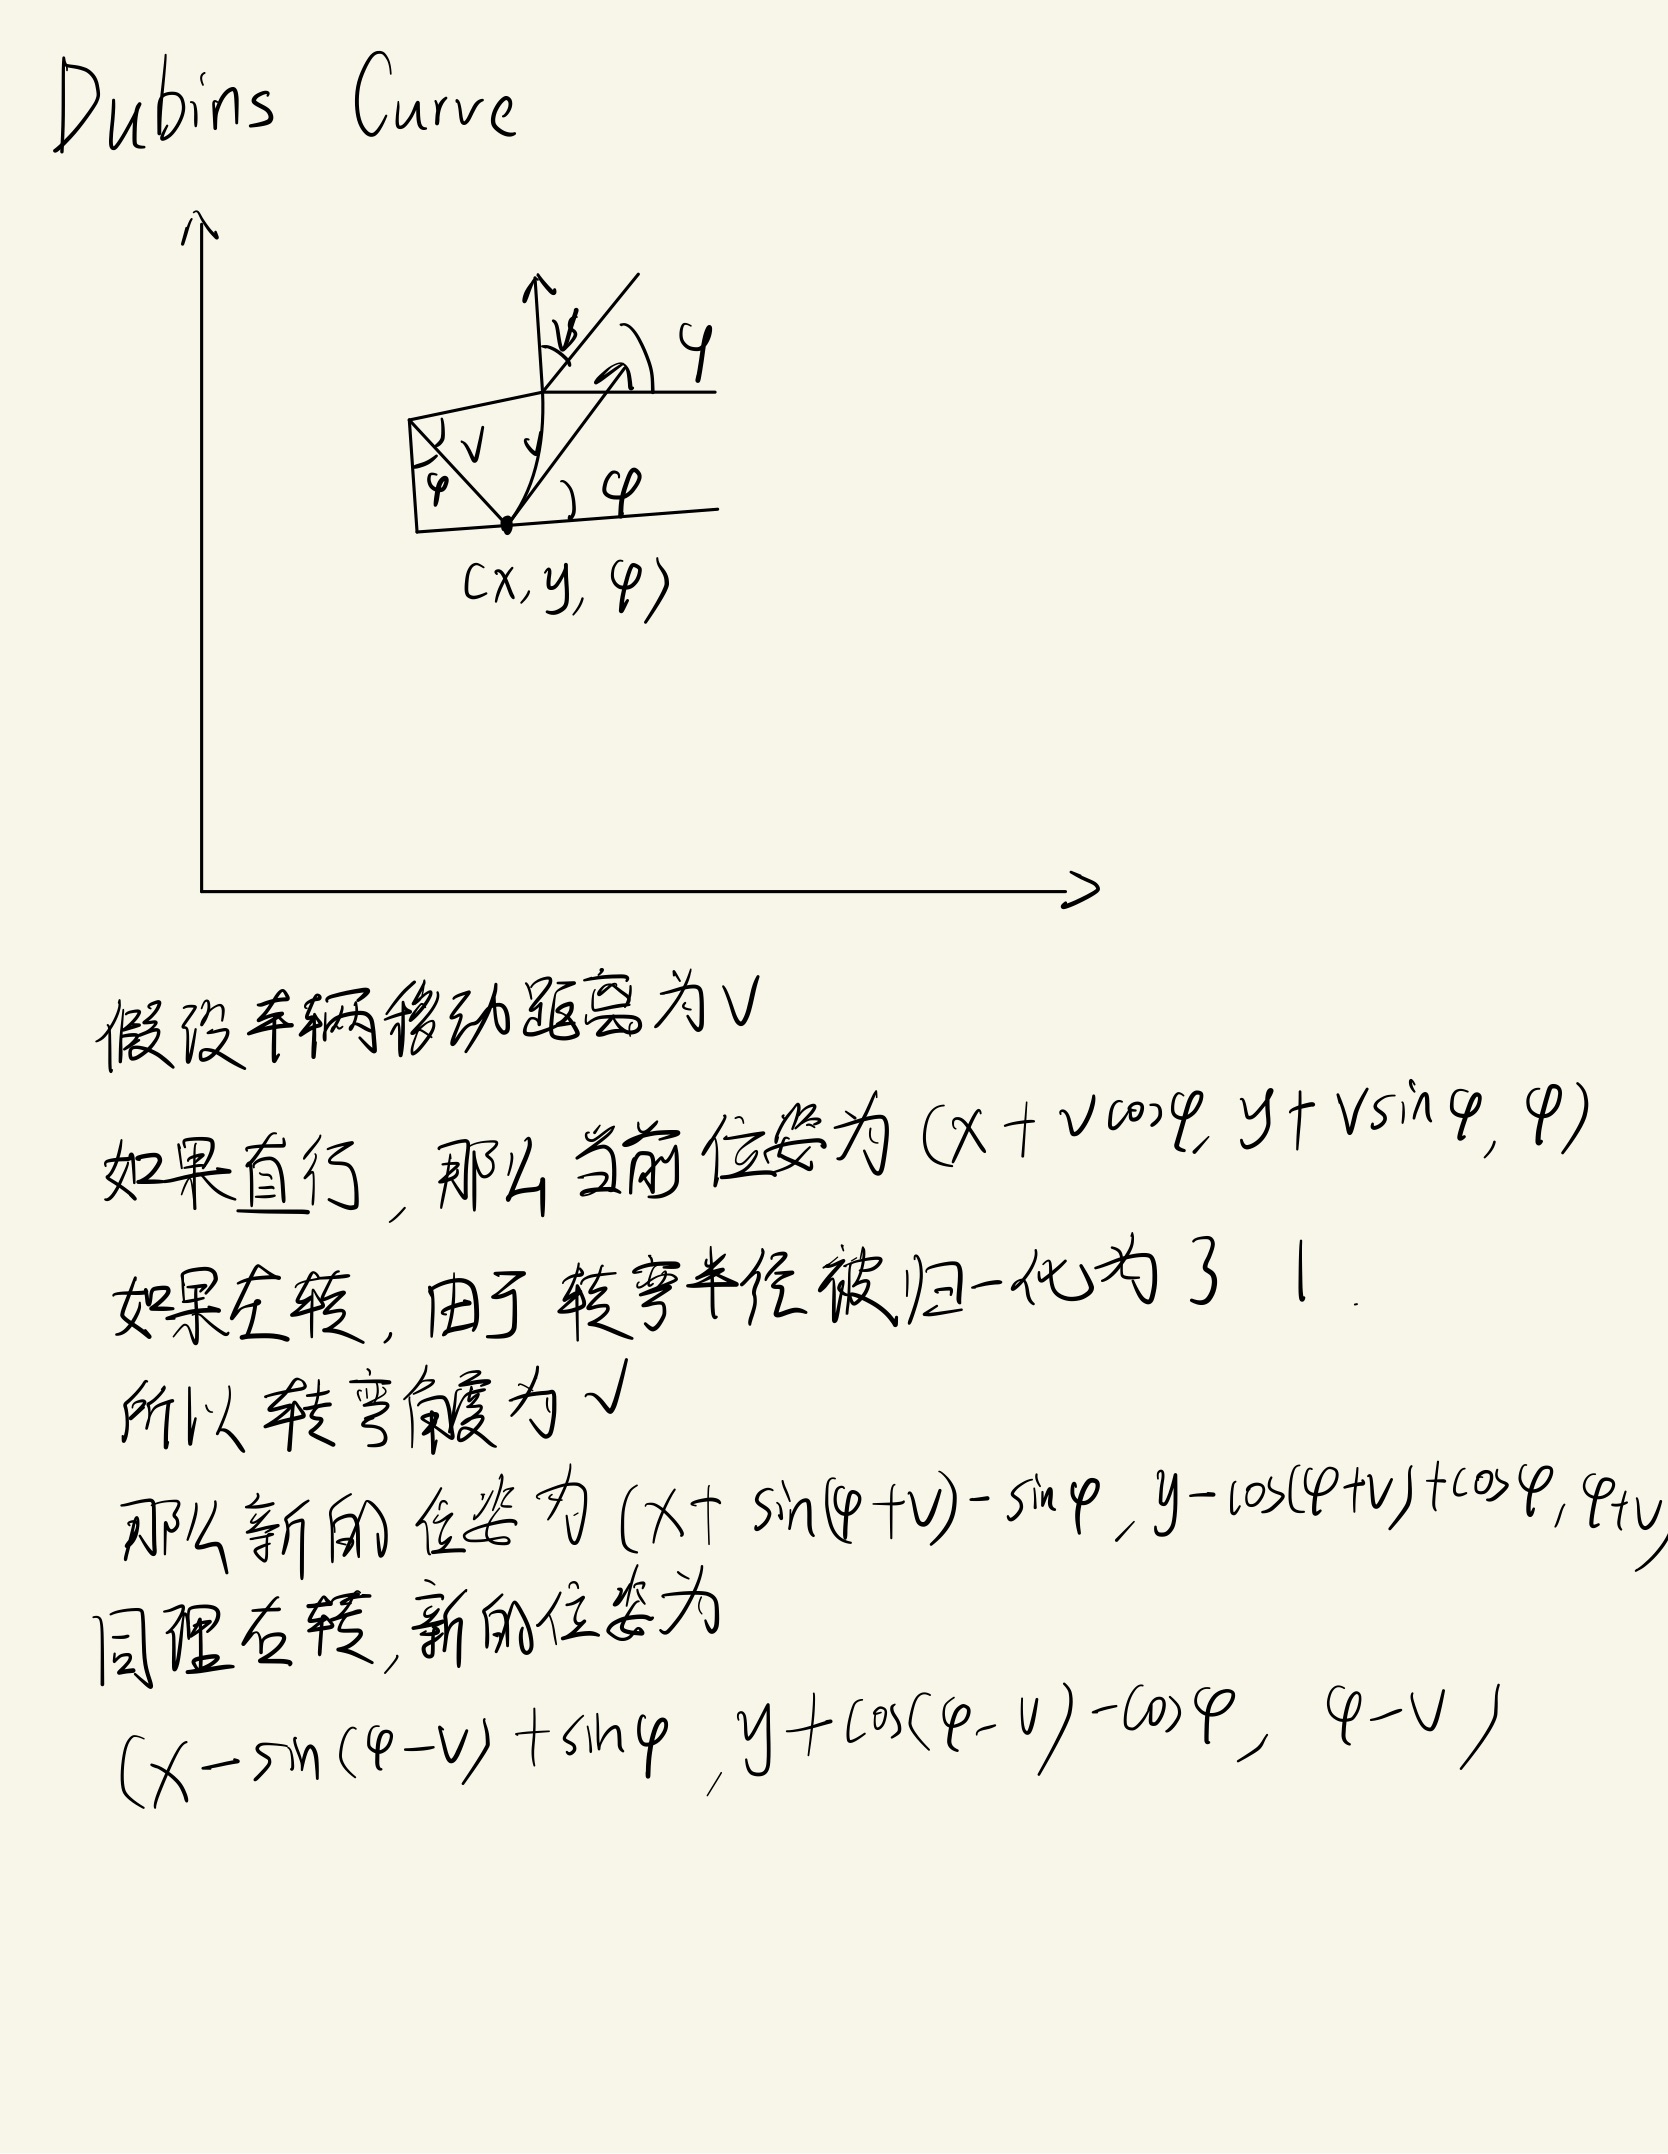 Dubins Curve
v
φ
v
v
φ
φ
(x, y, φ)
假设车辆移动距离为v
如果直行,那么当前位姿为(x + vcosφ, y + vsinφ, φ)
如果左转,由于转弯半径被归一化为了 1.
所以转弯角度为v
那么新的位姿为(x + sin(φ+v) - sinφ, y - cos(φ+v) + cosφ, φ+v)
同理右转,新的位姿为
(x - sin(φ-v) + sinφ, y + cos(φ-v) - cosφ, φ-v)